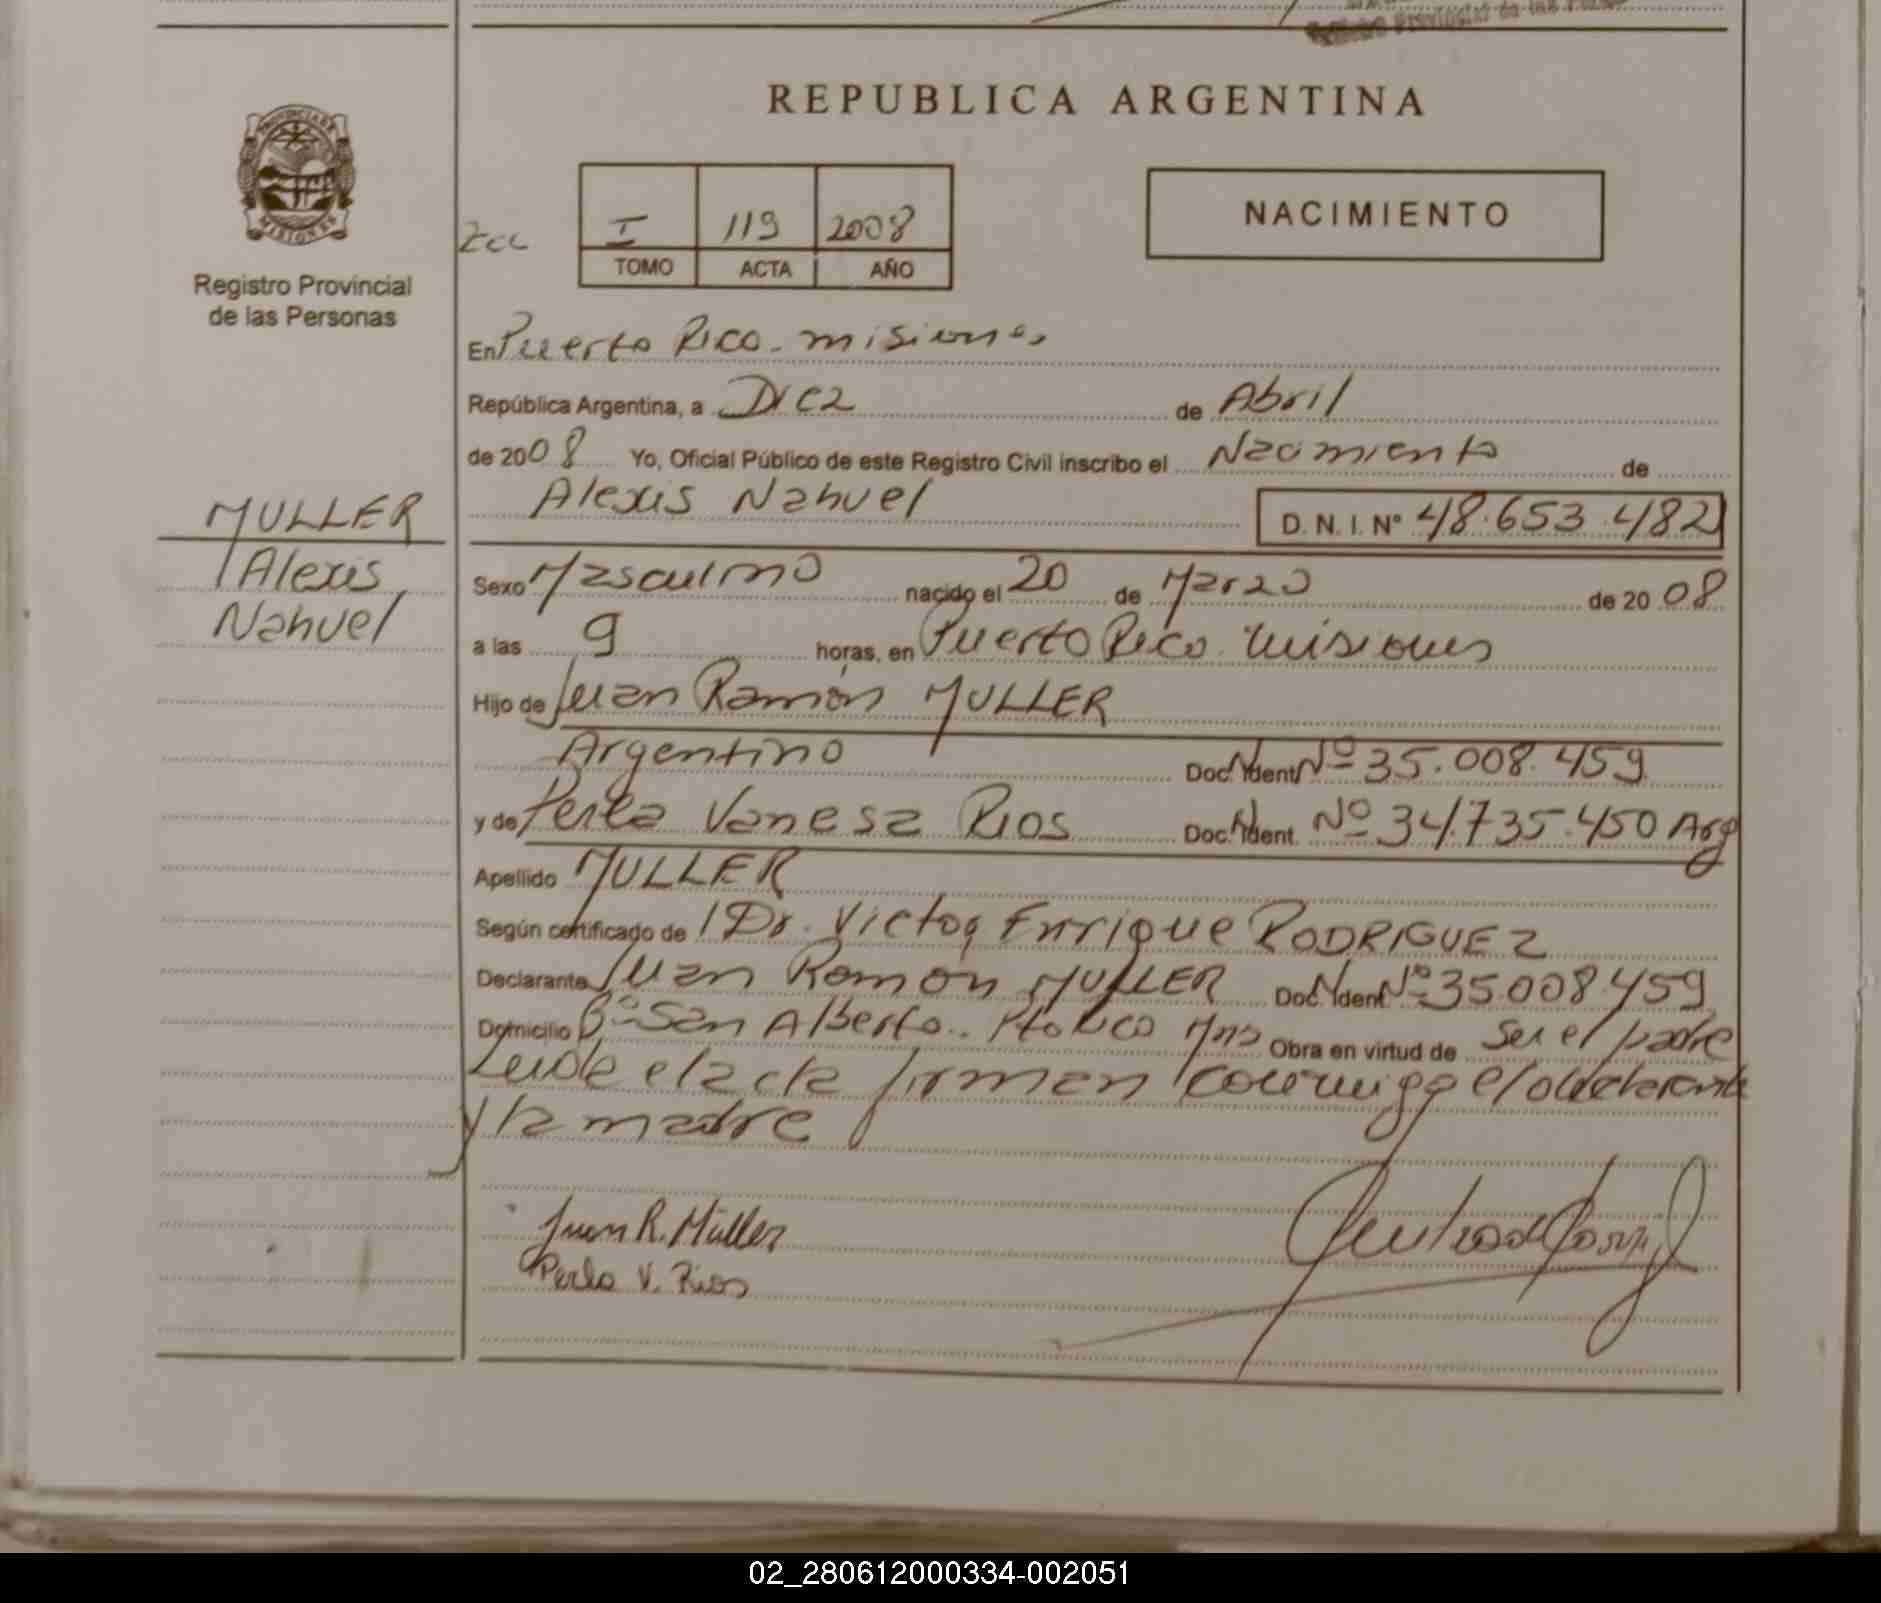 Registro Provincial de las Personas
REPUBLICA ARGENTINA
PROVINCIA DE
MISIONES
Registro Provincial
de las Personas
I 119 2008
TOMO ACTA AÑO
NACIMIENTO
En Puerto Rico - misiones
República Argentina, a Diez de Abril
de 2008 Yo, Oficial Público de este Registro Civil inscribo el Nacimiento de
Alexis Nahuel D.N.I. Nº 48.653.482
MULLER
Alexis
Nahuel
Sexo Masculino nacido el 20 de Marzo de 2008
a las 9 horas, en Puerto Rico. Misiones
Hijo de Juan Ramón MULLER
Argentino Doc. Ident Nº 35.008.459
y de Perla Vanesa Rios Doc. Ident. Nº 34.735.450 Arg
Apellido MULLER
Según certificado de Dr. Victor Enrique RODRIGUEZ
Declarante Juan Ramon MULLER Doc. Ident Nº 35.008.459
Domicilio Bº San Alberto. Pto Rico Mns Obra en virtud de Ser el padre
Leída el acta firman conmigo el declarante
y la madre
Juan R. Müller
Perla V. Rios
02_280612000334-002051